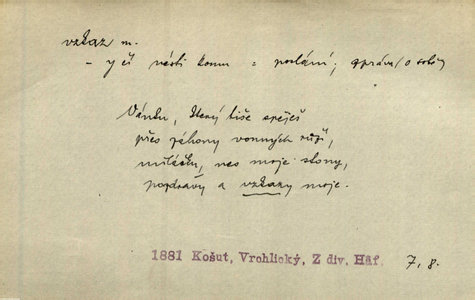 vzkaz m.
nésti komu = poslání; zpráva / o sobě
Vánku, který tiše spěješ
přes záhony vonných růží,
miláčku, nes moje stony,
pozdravy a vzkazy moje.
1881 Košut, Vrchlický, Z div. Háf. 7, 8.